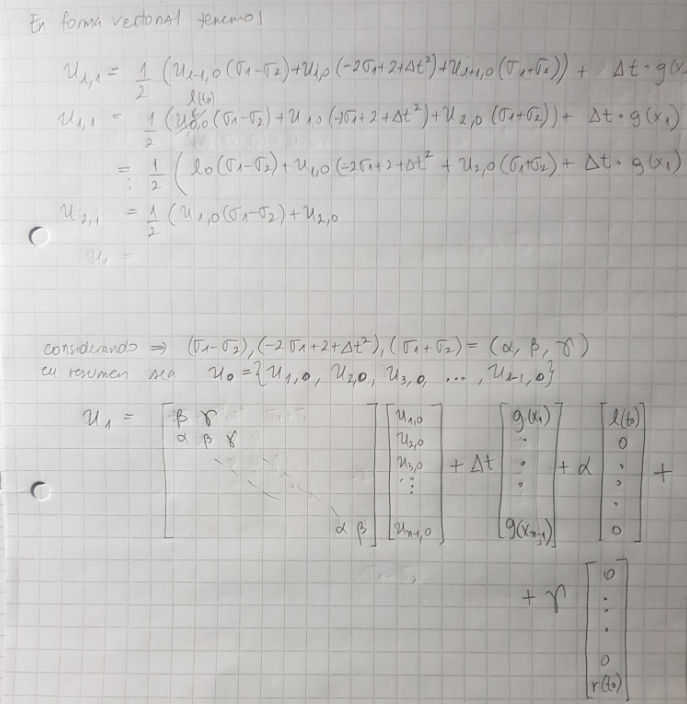 En forma vectorial tenemos
u_{i,1} = 1/2 (u_{i-1,0}(σ1-σ2)+u_{i,0}(-2σ1+2+Δt²)+u_{i+1,0}(σ1+σ2)) + Δt·g(x
l(t0)
u_{1,1} = 1/2 (u_{0,0}(σ1-σ2)+u_{1,0}(-2σ1+2+Δt²)+u_{2,0}(σ1+σ2)) + Δt·g(x1)
= 1/2 (l0(σ1-σ2)+u_{1,0}(-2σ1+2+Δt²+u_{2,0}(σ1+σ2)+Δt·g(x1)
u_{2,1} = 1/2 (u_{1,0}(σ1-σ2)+u_{2,0}
u, =
considerando ⇒ (σ1-σ2),(-2σ1+2+Δt²),(σ1+σ2) = (α, β, γ)
en resumen sea u0 = {u_{1,0}, u_{2,0}, u_{3,0}, ..., u_{n-1,0}}
u1 = [β γ] [u_{1,0}] + Δt [g(x1)] + α [l(t0)] +
α β γ u_{2,0} . 0
u_{3,0} . .
⋮ . .
α β u_{n-1,0} g(x_{n-1}) 0
+ γ [0
.
.
.
0
r(t0)]